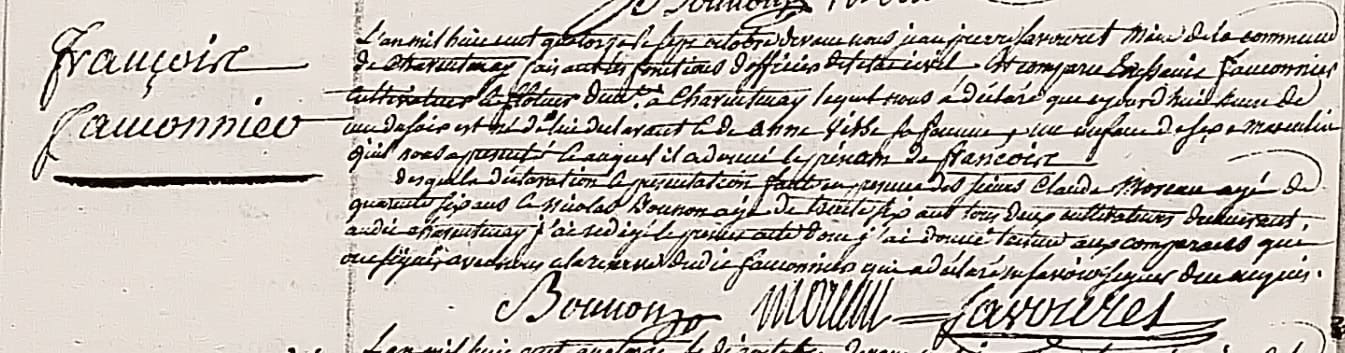 françoise
fauconnier
L'an mil huit cent quatorze le sept octobre devant nous jean pierre Savouret Maire de la commune
de Charentenay faisant les fonctions d'officier de l'état civil Est comparu En Sieur fauconnier
cultivateur à Charentenay lequel nous a déclaré que ejourd'hui heure de
un du soir est né de lui declarant & de anne fe femme, un enfant de sexe masculin
qu'il nous a presenté & auquel il a donné le prénom de françoise
desquelle déclaration & presentation fait en presence des sieurs Claude Moreau agé de
quarante six ans & Nicolas Bounon age de trente six ans tous deux cultivateurs demeurant
audit charentenay j'ai redigé le présent acte dont j'ai donné lecture aux comparants qui
ont signés avec nous a la reserve dudit fauconnier qui a déclaré ne savoir signer de ce requis.
Bounon Moreau Savouret
L'an mil huit cent quatorze le octobre devant